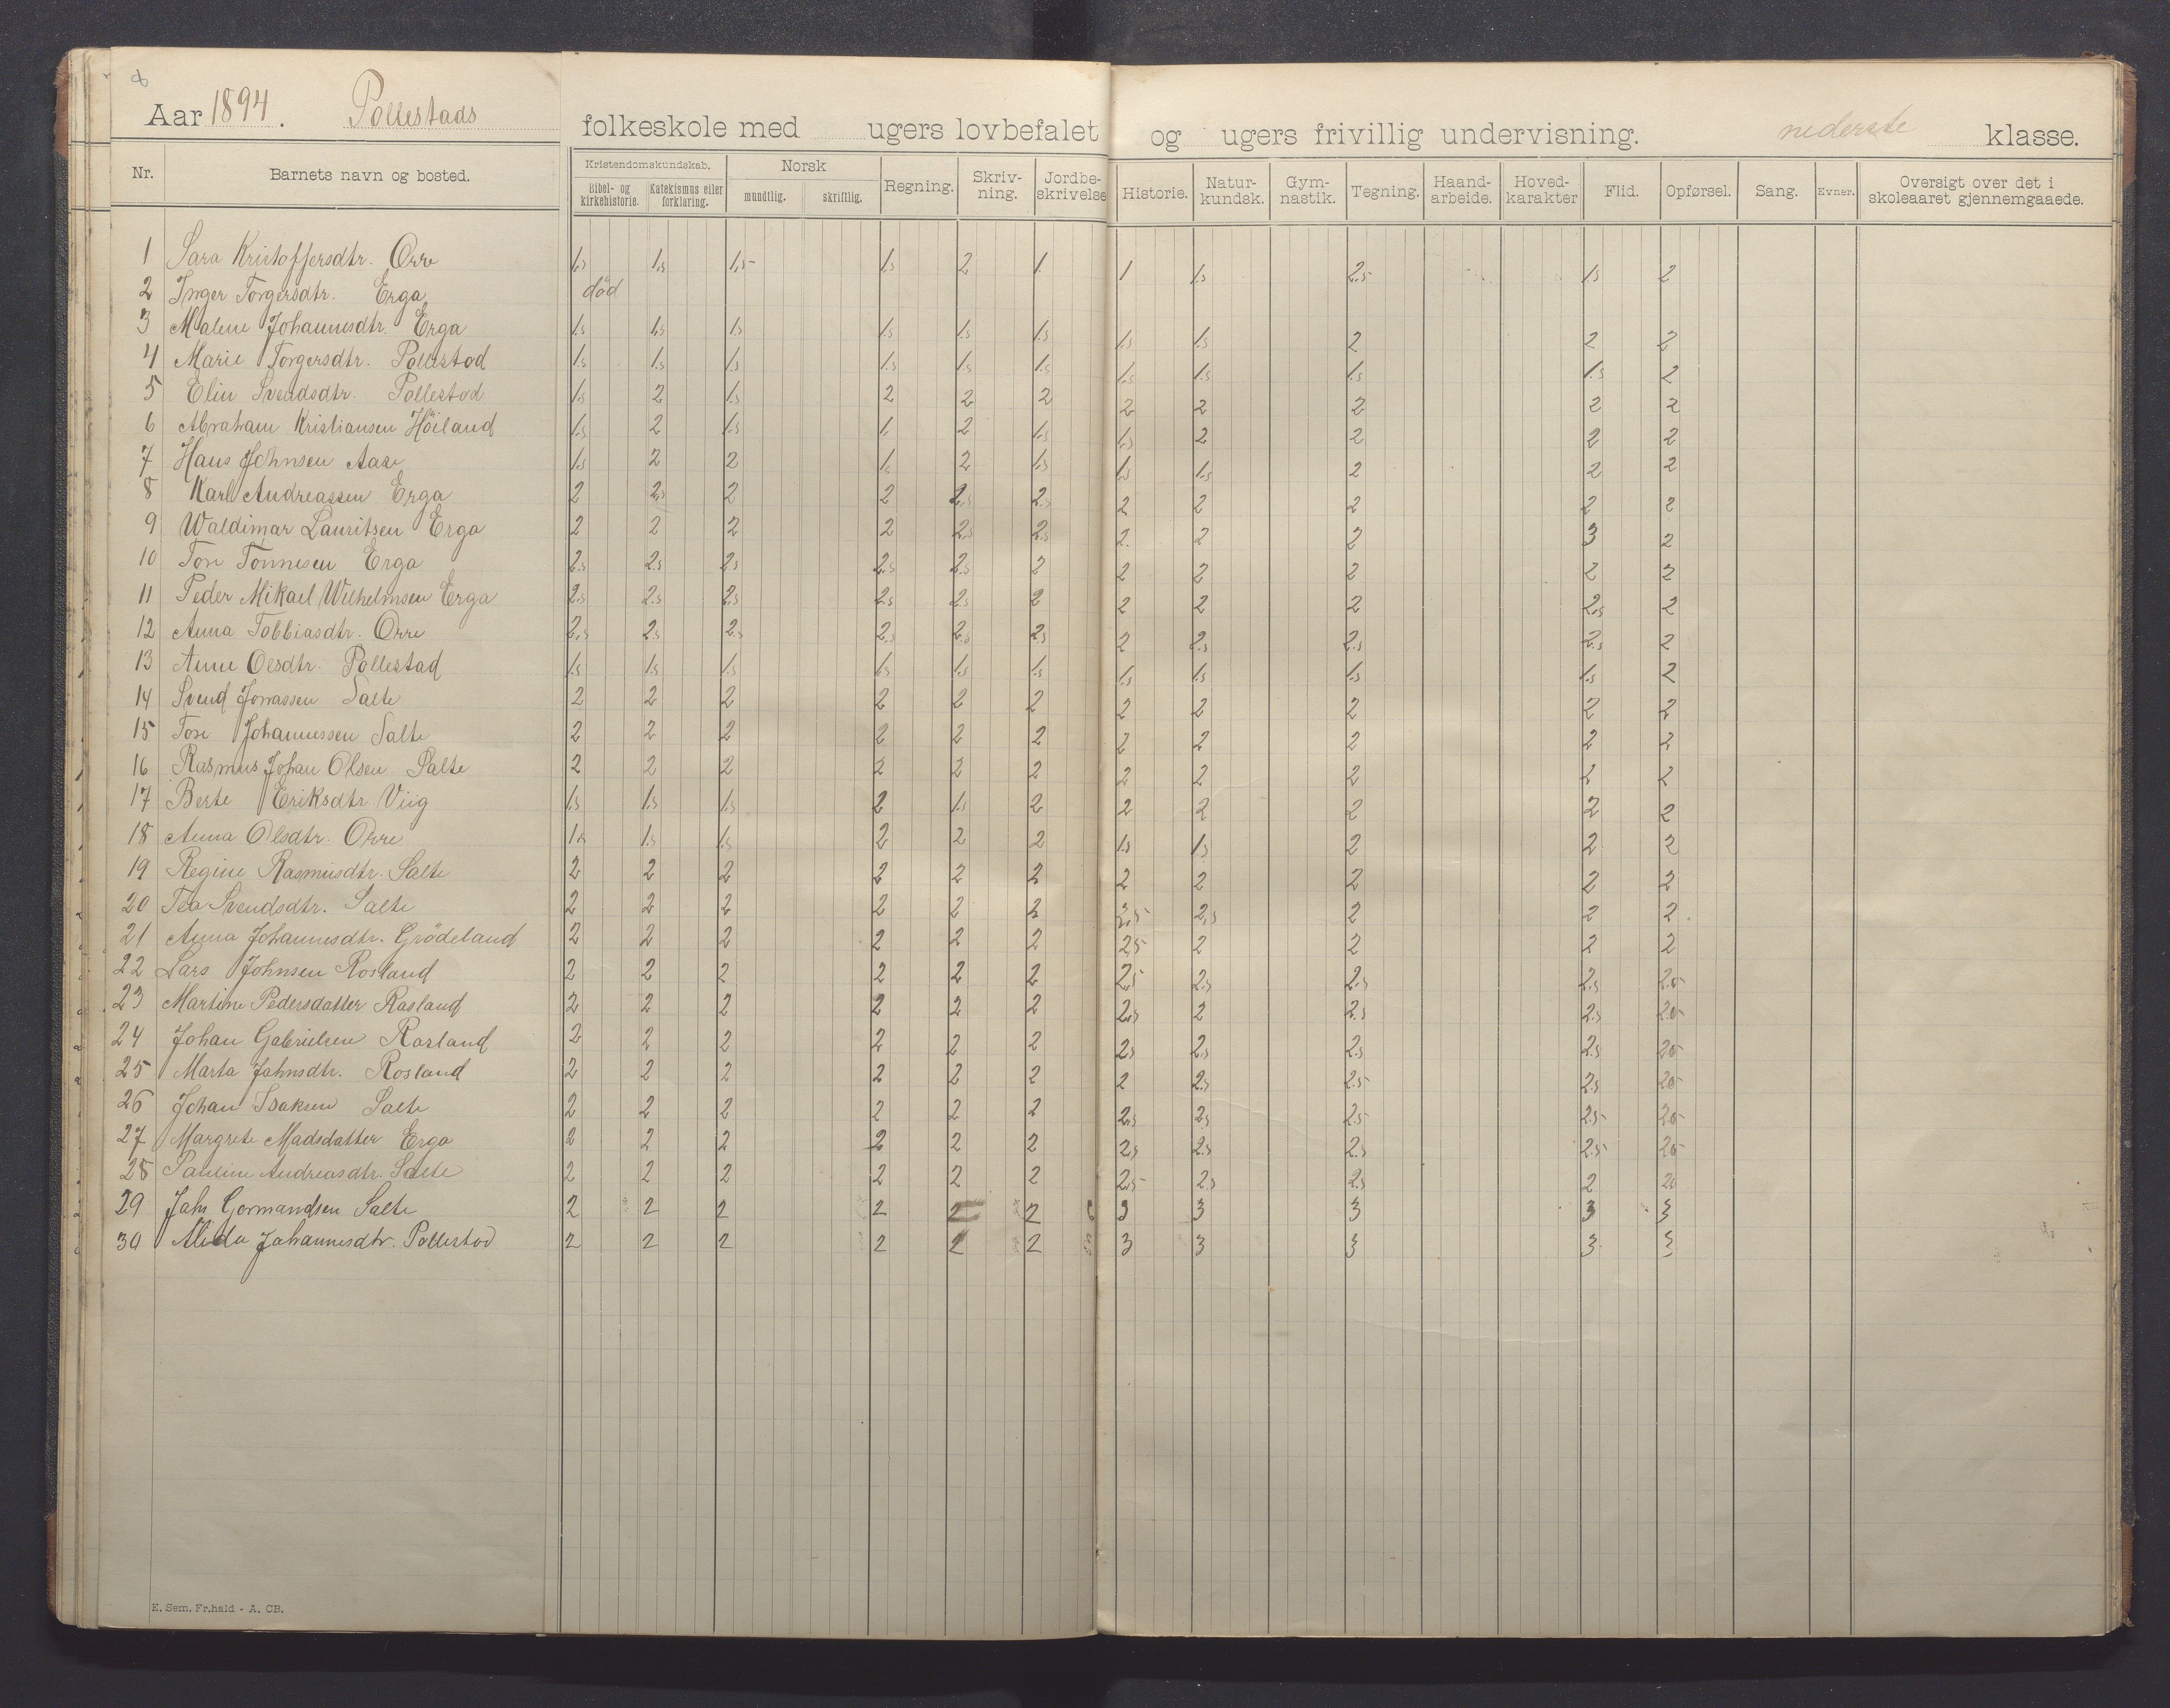 8
Aar 1894. Pollestads folkeskole med ugers lovbefalet og ugers frivillig undervisning. nederste klasse.
Nr. Barnets navn og bosted. Kristendomskundskab. Bibel- og kirkehistorie. Katekismus eller forklaring. Norsk mundtlig. skriftlig. Regning. Skriv-ning. Jordbe-skrivelse Historie. Natur-kundsk. Gym-nastik. Tegning. Haand-arbeide. Hoved-karakter Flid. Opførsel. Sang. Evner. Oversigt over det i skoleaaret gjennemgaaede.
1 Sara Kristoffersdtr. Orre 1.5 1.5 1.5 1.5 2 1 1 1.5 2.5 1.5 2
2 Inger Torgersdtr. Erga død
3 Malene Johannesdtr. Erga 1.5 1.5 1.5 1.5 1.5 1.5 1.5 1.5 2 2 2
4 Marie Torgersdtr. Pollestad 1.5 1.5 1.5 1.5 1.5 1.5 1.5 1.5 1.5 1.5 2
5 Elin Svendsdtr. Pollestad 1.5 2 1.5 2 2 2 2 2 2 2 2
6 Abraham Kristiansen Höiland 1.5 2 1.5 1. 2 1.5 1.5 2 2 2 2
7 Hans Johnsen Aase 1.5 2 2 1. 2 1.5 1.5 1.5 2 2 2
8 Karl Andreassen Erga 2 2.5 2 2 2.5 2.5 2 2 2 2 2
9 Waldimar Lauritsen Erga 2 2 2 2 2.5 2.5 2. 2 2 3 2
10 Tore Tönnesen Erga 2.5 2.5 2.5 2.5 2.5 2 2 2 2 2 2
11 Peder Mikael Wilhelmsen Erga 2.5 2.5 2.5 2.5 2.5 2 2 2 2 2.5 2
12 Anna Tobbiasdtr. Orre 2.5 2.5 2.5 2.5 2.5 2.5 2 2.5 2.5 2.5 2
13 Anne Olsdtr. Pollestad 1.5 1.5 1.5 1.5 1.5 1.5 1.5 1.5 1.5 1.5 2
14 Svend Jonassen Salte 2 2 2 2 2 2 2 2 2 2 2
15 Tore Johannessen Salte 2 2 2 2 2 2 2 2 2 2 2
16 Rasmus Johan Olsen Salte 2 2 2 2 2 2 2 2 2 2 2
17 Berte Eriksdtr Viig 1.5 1.5 1.5 2 1.5 2 2 2 2 2 2
18 Anna Olsdtr. Orre 1.5 1.5 1.5 2 2 2 1.5 1.5 2 2 2
19 Regine Rasmusdtr. Salte 2 2 2 2 2 2 2 2 2 2 2
20 Tea Svendsdtr. Salte 2 2 2 2 2 2 2,5 2,5 2 2 2
21 Anna Johannesdtr. Grödeland 2 2 2 2 2 2 2,5 2 2 2 2
22 Lars Johnsen Rosland 2 2 2 2 2 2 2,5 2.5 2.5 2.5 2.5
23 Martine Pedersdatter Rasland 2 2 2 2 2 2 2.5 2 2.5 2.5 2.5
24 Johan Gabrielsen Rosland 2 2 2 2 2 2 2.5 2.5 2.5 2.5 25
25 Marta Jahnsdtr. Rosland 2 2 2 2 2 2 2 2.5 2.5 2.5 25
26 Johan Isaksen Salte 2 2 2 2 2 2 2.5 2.5 2.5 2.5 25
27 Margrete Madsdatter Erga 2 2 2 2 2 2 2.5 2.5 2.5 2.5 25
28 Pauline Andreasdtr. Salte 2 2 2 2 2 2 2,5 2.5 2.5 2
29 Jahn Gormandsen Salte 2 2 2 2 2 2 3 3 3 3 3
30 Alida Johannesdtr. Pollestad 2 2 2 2 2 2 3 3 3 3 3
E. Sem. Fr.hald - A. CB.